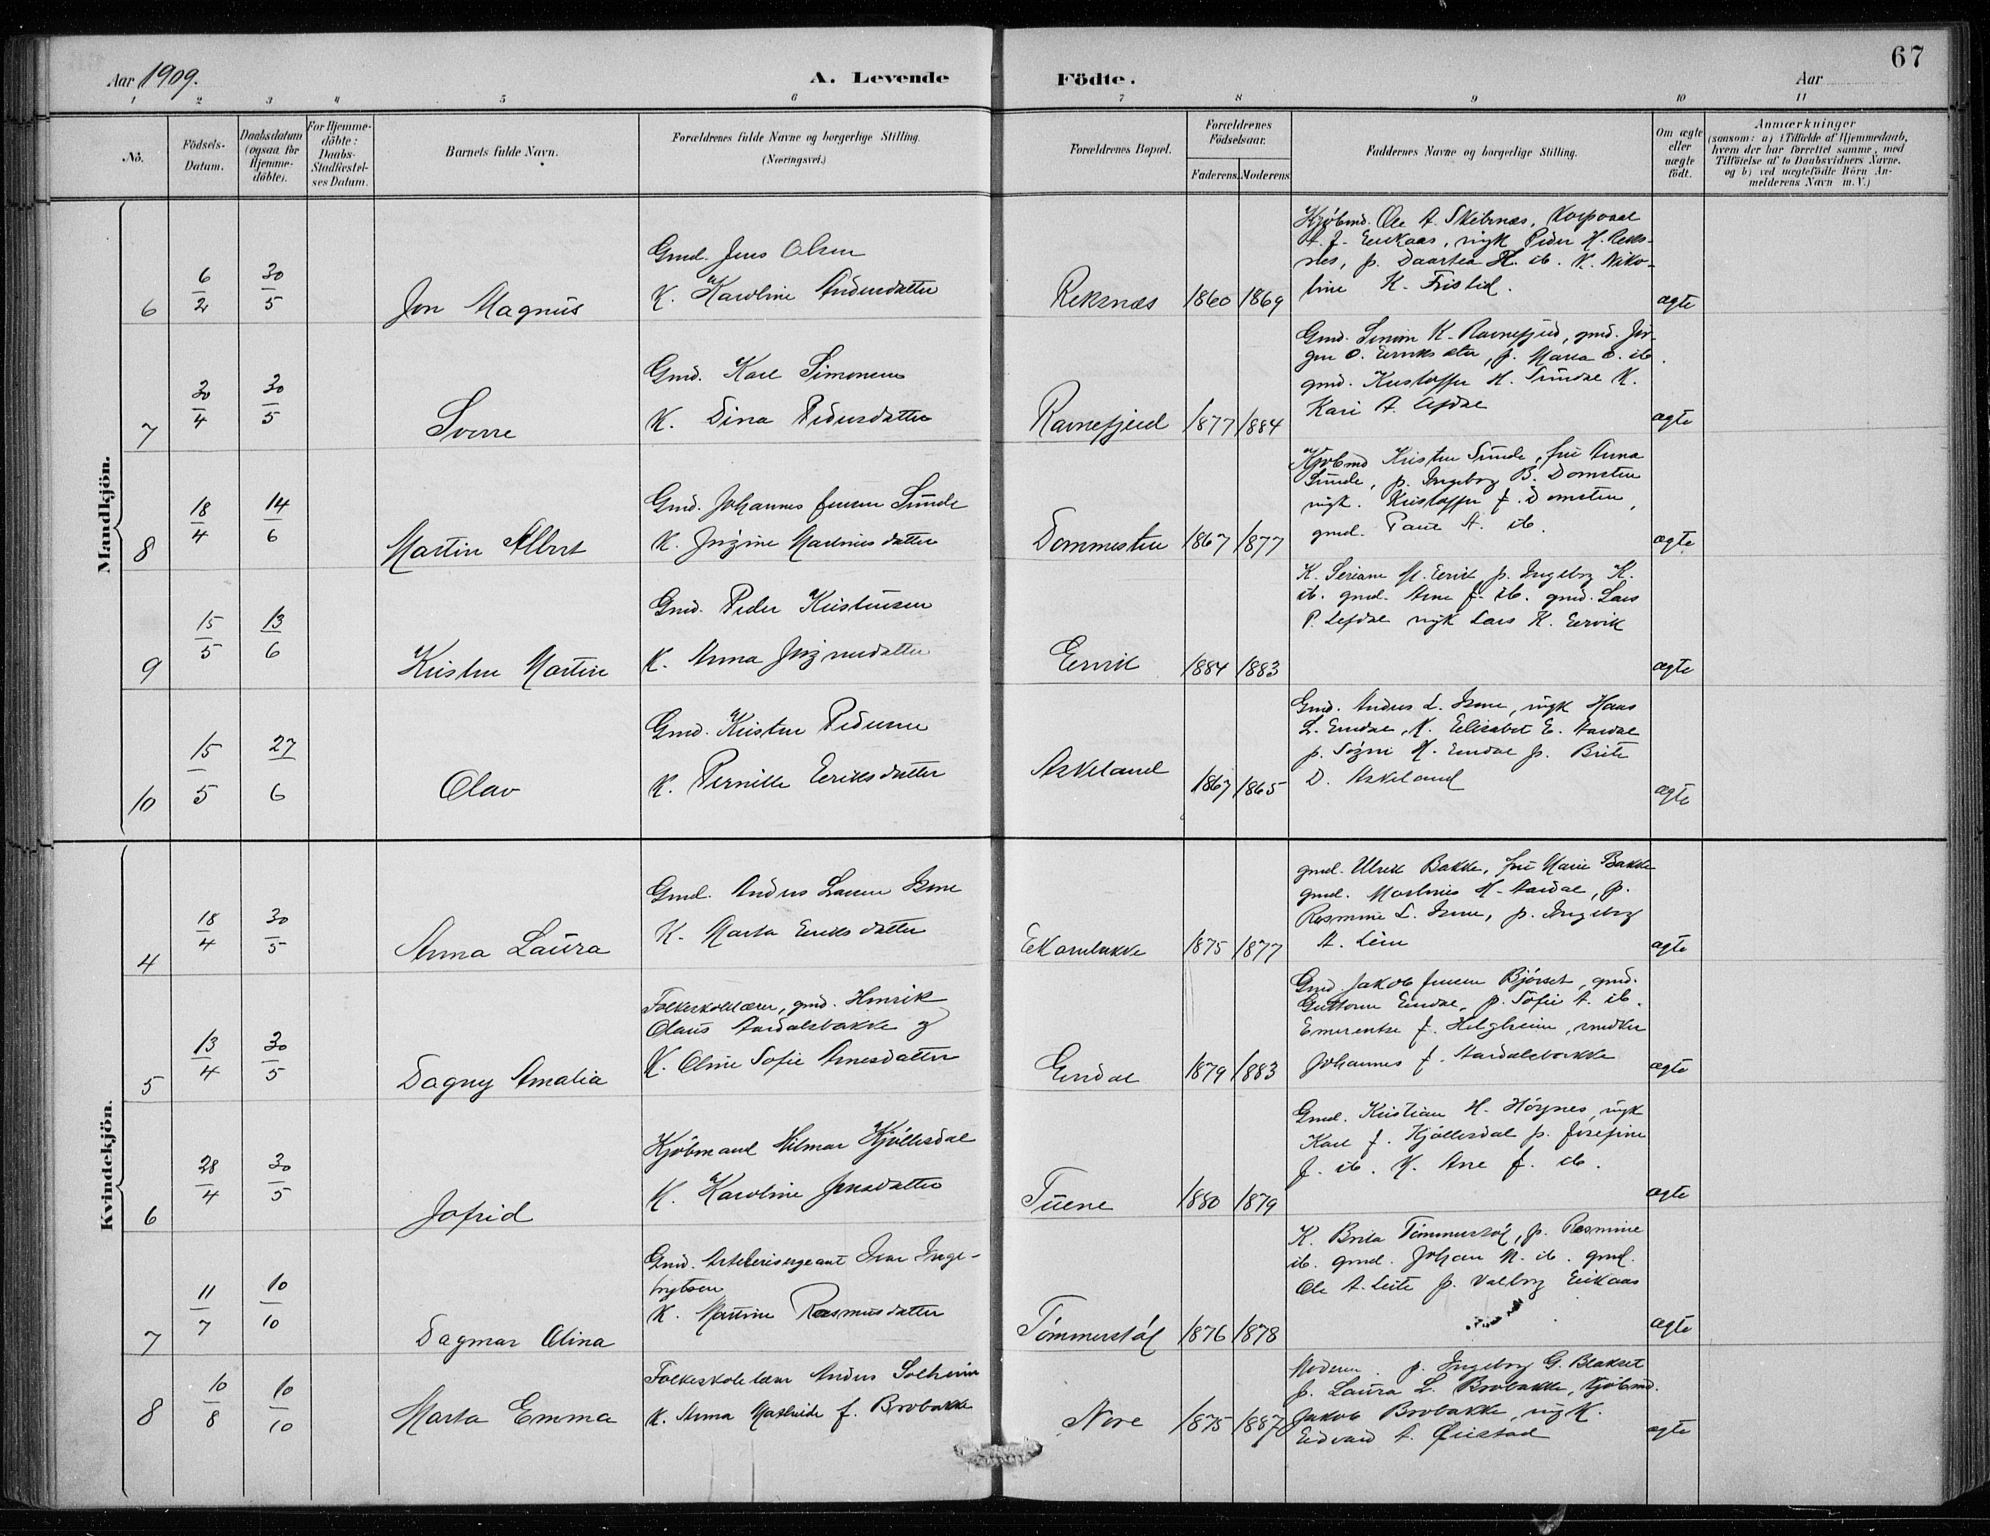 67
Aar 1909.
A. Levende
Födte.
Aar
1 2 3 4 5 6 7 8 9 10 11
No.
Födsels-Datum.
Daabsdatum (ogsaa for Hjemme-döbte).
For Hjemme-döbte: Daabs-Stadfæstel-ses Datum.
Barnets fulde Navn.
Forældrenes fulde Navne og borgerlige Stilling.
(Næringsvei.)
Forældrenes Bopæl.
Forældrenes Födselsaar.
Faderens. Moderens.
Faddernes Navne og borgerlige Stilling.
Om ægte eller uægte födt.
Anmærkninger
(saasom: a) i Tilfælde af Hjemmedaab,
hvem der har forrettet samme, med
Tilföielse af to Daabsvidners Navne,
og b) ved uægtefödte Börn An-
melderens Navn m. V.)
Mandkjön.
6
6/2
30/5
Jon Magnus
Gmd. Jens Olsen
K. Karoline Andersdatter
Reksnæs
1860 1869
Kjøbmd. Ole A. Skibenæs, Korporal
nes, p. Daartea H. ib. K. Niko-
line K. Fristid.
ægte
7
30/4
30/5
Sverre
Gmd. Karl Simonsen
K. Dina Pedersdatter
Ravnefjeld
1877 1884
Gmd. Simon K. Ravnefjeld, gmd. Jør-
gen O. p. Maria O. ib.
gmd. Kristoffer H. Sunde K.
Kari A. Lefdal
ægte
8
18/4
14/6
Martin Albert
Gmd. Johannes Jensen Sunde
K. Jørgine Martinusdatter
Dommesten
1867 1877
Kjøbmd Kristen Sunde, fru Anna
Sunde, p. Ingeborg B. Domsten
ungk. Kristoffer J. Domsten,
gmd. Paul A. ib.
ægte
9
15/5
13/6
Kristen Martin
Gmd. Peder Kristensen
K. Anna Jørgensdatter
Ervik
1884 1883
K. Seriane M. Ervik, p. Ingeborg K.
ib. gmd. Arne J. ib. gmd. Lars
P. Lefdal ungk Lars K. Ervik
ægte
10
15/5
27/6
Olav
Gmd. Kristen Pedersen
K. Pernille Eriksdatter
Askeland
1867 1865
Gmd. Anders L. Isene, ungk Hans
L. Endal, K. Elisabet E. Aardal
p. Søgni H. Endal p. Brite
D. Askeland
ægte
Kvindekjön.
4
18/4
30/5
Anna Laura
Gmd. Anders Larsen Isene
K. Marta Eriksdatter
1875 1877
gmd. Ulrik Bakke, fru Marie Bakke
gmd. Martinus H. Aardal, p.
Rasmine L. Isene, p. Ingeborg
A. Lein
ægte
5
13/4
30/5
Dagny Amalia
Folkeskolelærer, gmd. Henrik
Olaus Aardalsbakke og
K. Oline Sofie Arnesdatter
Endal
1879 1883
Gmd. Jakob Jensen Bjørset, gmd.
Guttorm Endal, p. Sofie A. ib.
Emerentse J. Helgheim, snedker
Johannes J. Aardalsbakke
ægte
6
28/4
30/5
Jofrid
Kjøbmand Hilmar Kjøllesdal
K. Karoline Jensdatter
Tuene
1880 1879
Gmd. Kristian H. Høynes, ungk
Karl J. Kjøllesdal p. Josefine
J. ib. K. Ane J. ib.
ægte
7
11/7
10/10
Dagmar Olina
Gmd. Artillerisergeant Ivar Inge-
brigtsen
K. Martine Rasmusdatter
Tømmerstøl
1876 1878
K. Brita Tømmerstøl, p. Rasmine
ib. gmd. Johan N. ib. gmd.
Ole A. Leite p. Valborg Eikaas
ægte
8
10/8
10/10
Marta Emma
Folkeskolelærer Anders Solheim
K. Anna Mathilde J. Brobakke
Nore
1875 1887
Moderen p. Ingeborg G. Blakset
p. Laura L. Brobakke, Kjøbmd.
Jakob Brobakke, ungk.
Edvard A. Øristad
ægte